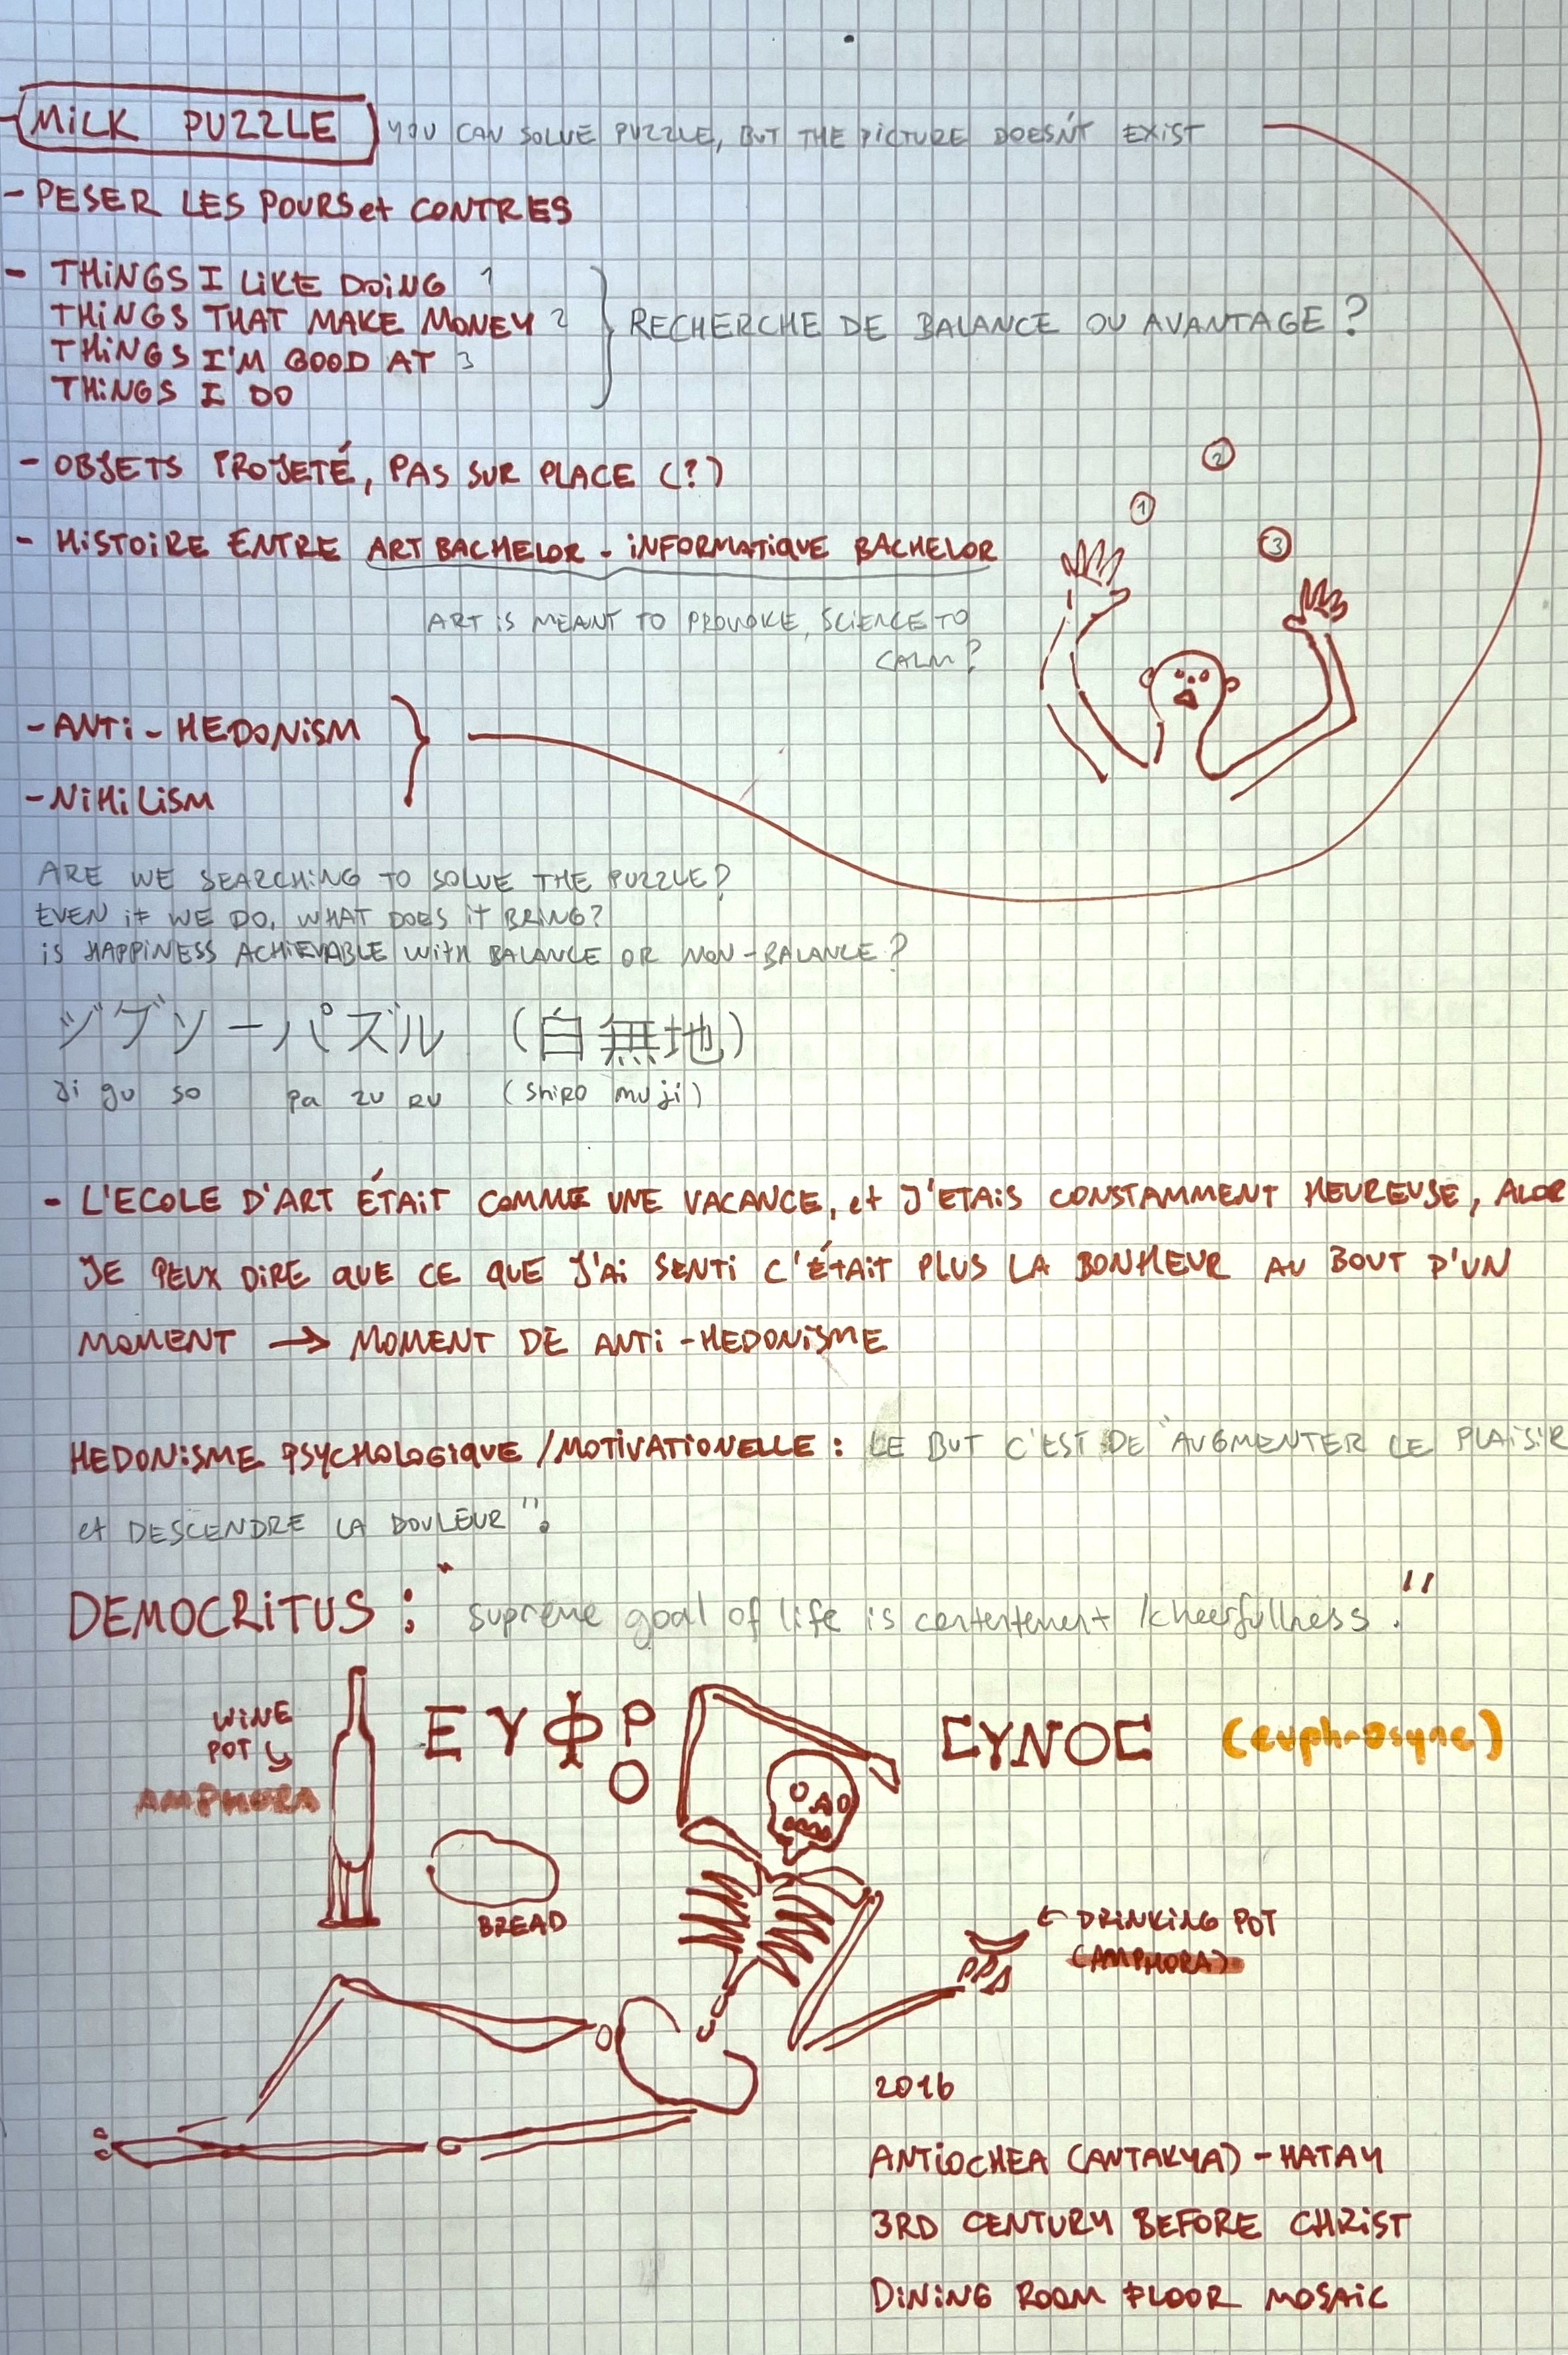 MILK PUZZLE YOU CAN SOLVE PUZZLE, BUT THE PICTURE DOESN'T EXIST
- PESER LES POURS et CONTRES
- THINGS I LIKE DOING 1
THINGS THAT MAKE MONEY 2
THINGS I'M GOOD AT 3
THINGS I DO
RECHERCHE DE BALANCE OU AVANTAGE ?
- OBJETS PROJETÉ, PAS SUR PLACE (?)
- HISTOIRE ENTRE ART BACHELOR - INFORMATIQUE BACHELOR
ART IS MEANT TO PROVOKE, SCIENCE TO
CALM?
1
2
3
- ANTI - HEDONISM
- NIHILISM
ARE WE SEARCHING TO SOLVE THE PUZZLE?
EVEN IF WE DO, WHAT DOES IT BRING?
IS HAPPINESS ACHIEVABLE WITH BALANCE OR NON-BALANCE?
ジグソーパズル (白無地)
Ji gu so pa zu ru (shiro muji)
- L'ECOLE D'ART ÉTAIT COMME UNE VACANCE, et J'ETAIS CONSTAMMENT HEUREUSE, ALOR
JE PEUX DIRE QUE CE QUE J'AI SENTI C'ÉTAIT PLUS LA BONHEUR AU BOUT D'UN
MOMENT → MOMENT DE ANTI-HEDONISME
HEDONISME PSYCHOLOGIQUE / MOTIVATIONELLE : LE BUT C'EST DE "AUGMENTER LE PLAISIR
et DESCENDRE LA DOULEUR".
DEMOCRITUS : "supreme goal of life is contentement / cheerfullness."
WINE
POT
AMPHORA
ΕΥΦΡΟ
CYNOC
(euphrosyne)
BREAD
← DRINKING POT
(AMPHORA)
2016
ANTIOCHEA (ANTAKYA) - HATAY
3RD CENTURY BEFORE CHRIST
DINING ROOM FLOOR MOSAIC